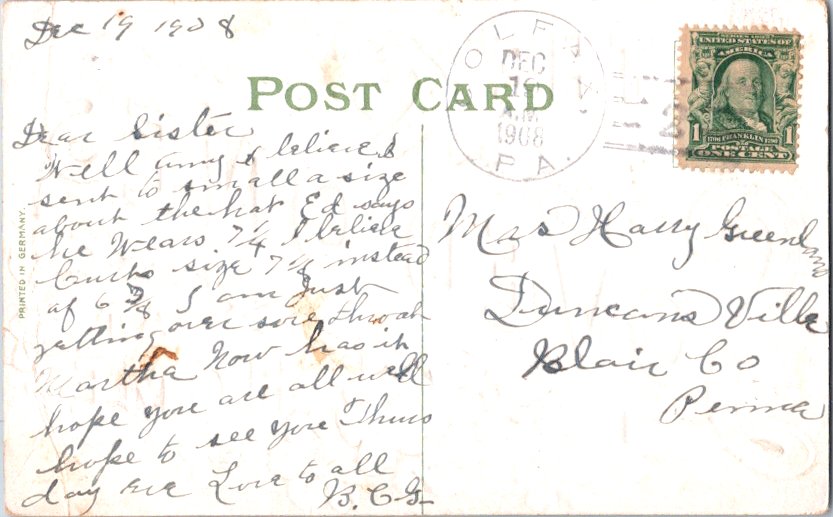 Dec 19 1908
POST CARD
Dear Sister
Well I believe I
sent to small a size
about the hat Ed says
he Wears 7 1/4 I believe
size 7 1/8 instead
of 6 7/8 I am Just
getting over sore throat
Martha Now has it
hope you are all well
hope to see you Thurs
day eve Love to all
B.C.G-
PRINTED IN GERMANY.
DEC
19
A.M.
1908
PA.
2
SERIES 1902
UNITED STATES OF
AMERICA
1706 FRANKLIN 1790
1 1
POSTAGE
ONE CENT
Mrs Harry Greenland
Duncans Ville
Blair Co
Penna